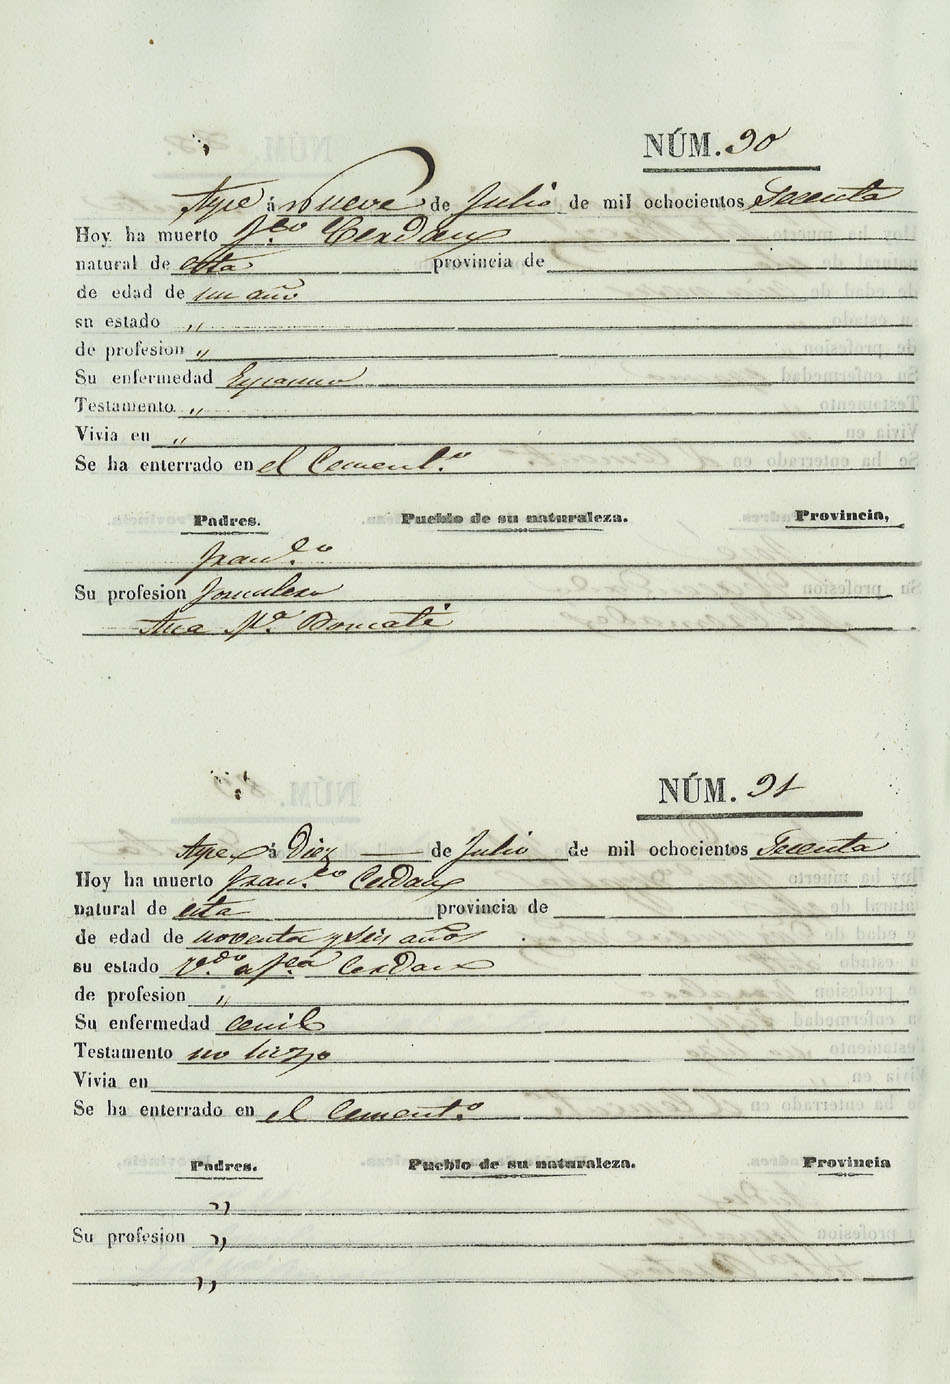 NÚM. 90
Aspe á Nueve de Julio de mil ochocientos Secenta
Hoy ha muerto Fco Cerdan
natural de esta provincia de
de edad de un año
su estado „
de profesion „
Su enfermedad
Testamento „
Vivia en „
Se ha enterrado en el Cement.o
Padres. Pueblo de su naturaleza. Provincia,
Fran.co
Su profesion Jornalero
Ana M.a
NÚM. 91
Aspe á Diez de Julio de mil ochocientos Secenta
Hoy ha muerto Fran.co Cerdan
natural de esta provincia de
de edad de noventa y seis años
su estado V.do a Fca Cerdan
de profesion „
Su enfermedad cenil
Testamento no hizo
Vivia en
Se ha enterrado en el Cement.o
Padres. Pueblo de su naturaleza. Provincia
„
Su profesion „
„